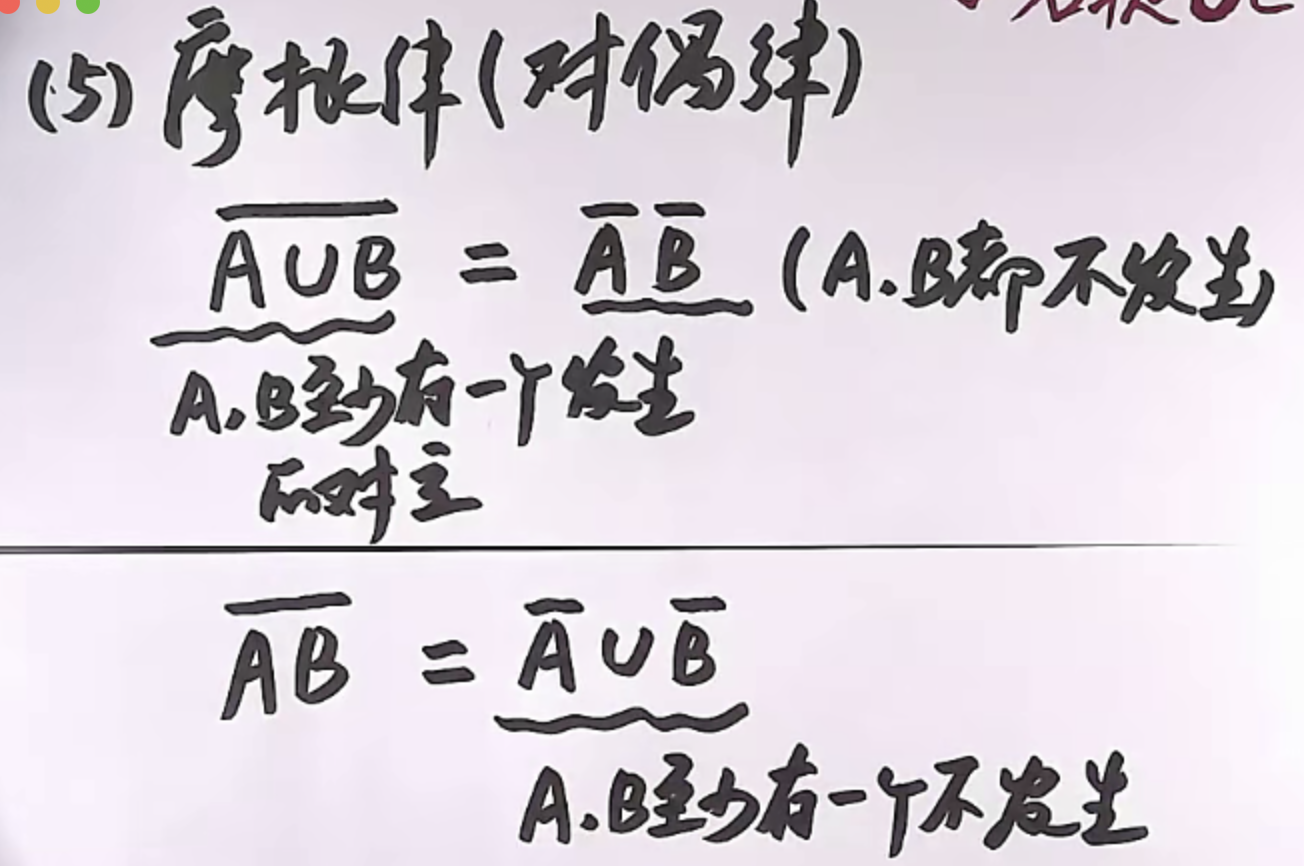 (5) 摩根律(对偶律)
$\overline{A \cup B} = \overline{A}\,\overline{B}$ (A.B都不发生)
A.B至少有一个发生
的对立
$\overline{AB} = \overline{A} \cup \overline{B}$
A.B至少有一个不发生